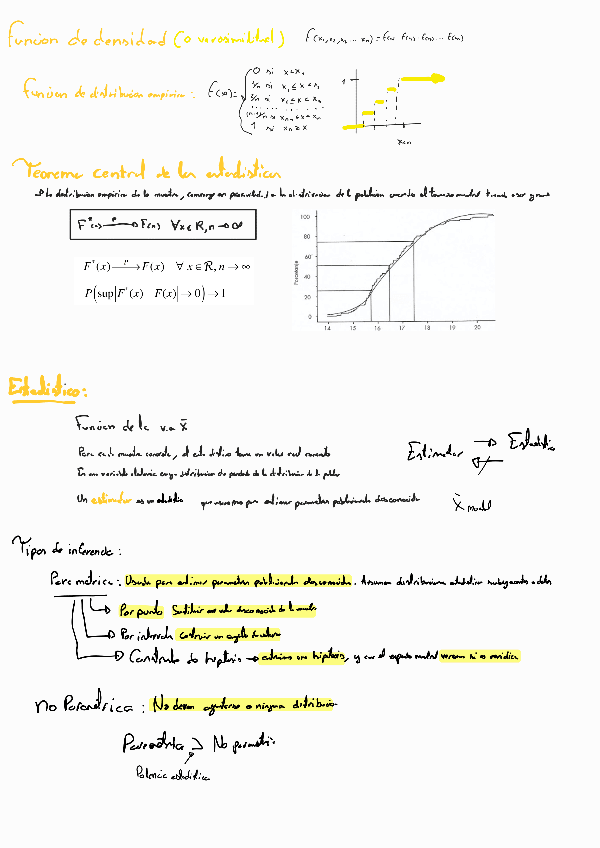 Función de densidad (o verosimilitud) f(x₁,x₂,x₃ ... xₙ) = f(x₁) f(x₂) f(x₃) ... f(xₙ)
Función de distribución empírica: F(x) =
0 si x<x₁
1/n si x₁ ≤ x < x₂
2/n si x₂ ≤ x < x₃
1 si xₙ ≤ x
1
Teorema central de la estadística
→ La distribución empírica de la muestra, converge en probabilidad a la distribución de la población cuando el tamaño muestral tiende a ser grande
F*(x) →ᵖ F(x) ∀x ∈ R, n → ∞
F*(x) →ᵖ F(x) ∀ x ∈ R, n → ∞
P(sup|F*(x) F(x)| → 0) → 1
Porcentaje
100
80
60
40
20
0
14 15 16 17 18 19 20
Estadístico:
Función de la v.a X̄
Para cada muestra concreta, el estadístico toma un valor real concreto
Es una variable aleatoria cuya distribución depende de la distribución de la población
Estimador → Estadístico
Un estimador es un estadístico que usamos para estimar parámetros poblacionales desconocidos
X̄ muestral
Tipos de inferencia:
Paramétrica: Usada para estimar parámetros poblacionales desconocidos. Asumen distribuciones estadísticas subyacentes a datos
→ Por punto Sustituir
→ Por intervalo Construir un
→ Contraste de hipótesis → estimamos una hipótesis, y con el muestral vemos si es verídica
No Paramétrica: No deben ajustarse a ninguna distribución
Paramétrica > No paramétrica
Potencia estadística